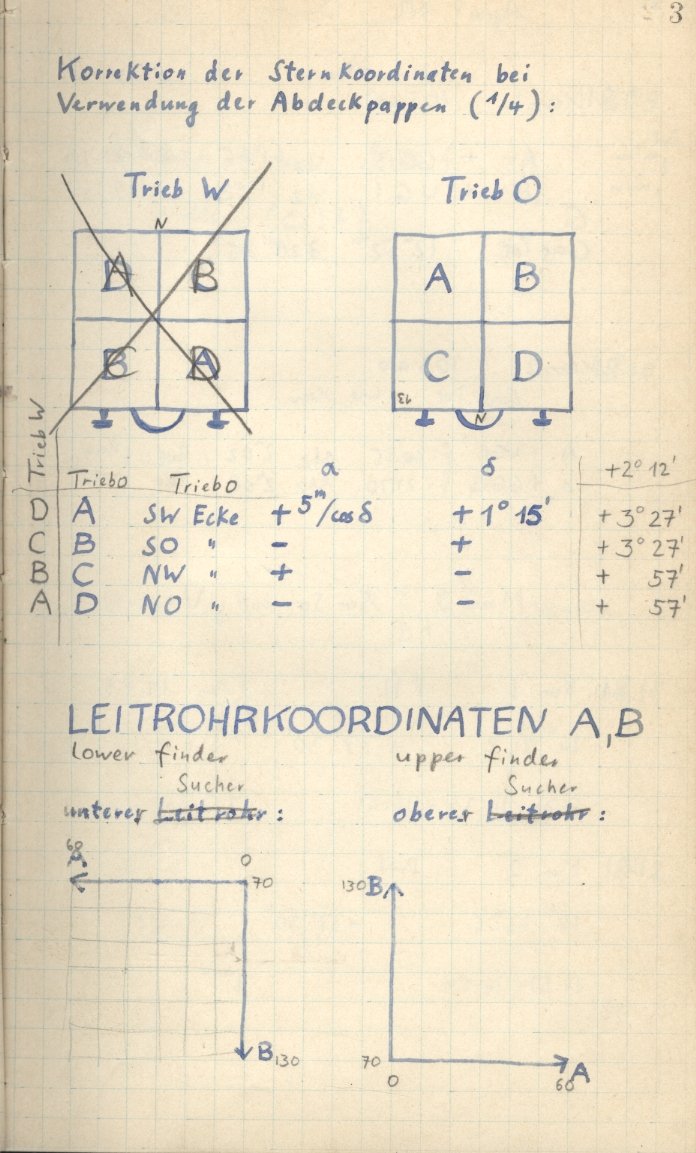 3
Korrektion der Sternkoordinaten bei
Verwendung der Abdeckpappen (1/4):
Trieb W
Trieb O
N
D A B
B C A D
A B
C D
N
Trieb W
TriebO TriebO α δ +2° 12'
D A SW Ecke +5ᵐ/cosδ +1° 15' +3° 27'
C B SO " - + +3° 27'
B C NW " + - + 57'
A D NO " - - + 57'
LEITROHRKOORDINATEN A,B
lower finder upper finder
Sucher Sucher
unterer Leitrohr: oberer Leitrohr:
60 A 0 70
B 130
130 B
70 0 60 A